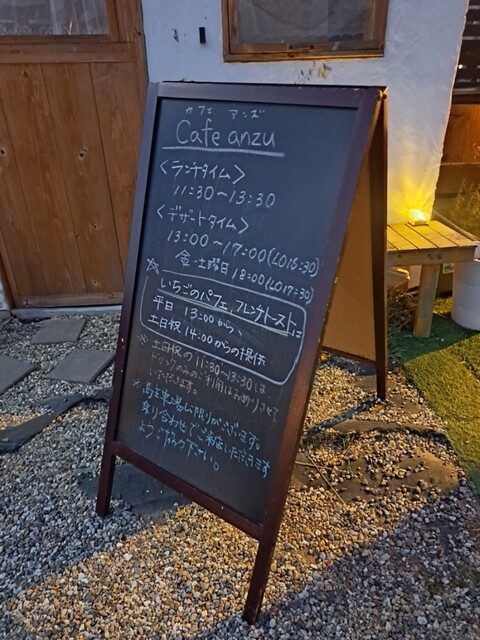 カフェ アンズ
Cafe anzu
〈ランチタイム〉
11:30〜13:30
〈デザートタイム〉
13:00〜17:00(LO16:30)
金・土曜日 18:00(LO17:30)
☆いちごのパフェ、フレンチトーストは
平日 13:00から、
土日祝 14:00からの提供
※土日祝の11:30〜13:30は、
ドリンクのみのご利用はお断りさせて
いただきます。
※駐車場に限りがございます。
乗り合わせでご来店いただきます
ようご協力下さい。